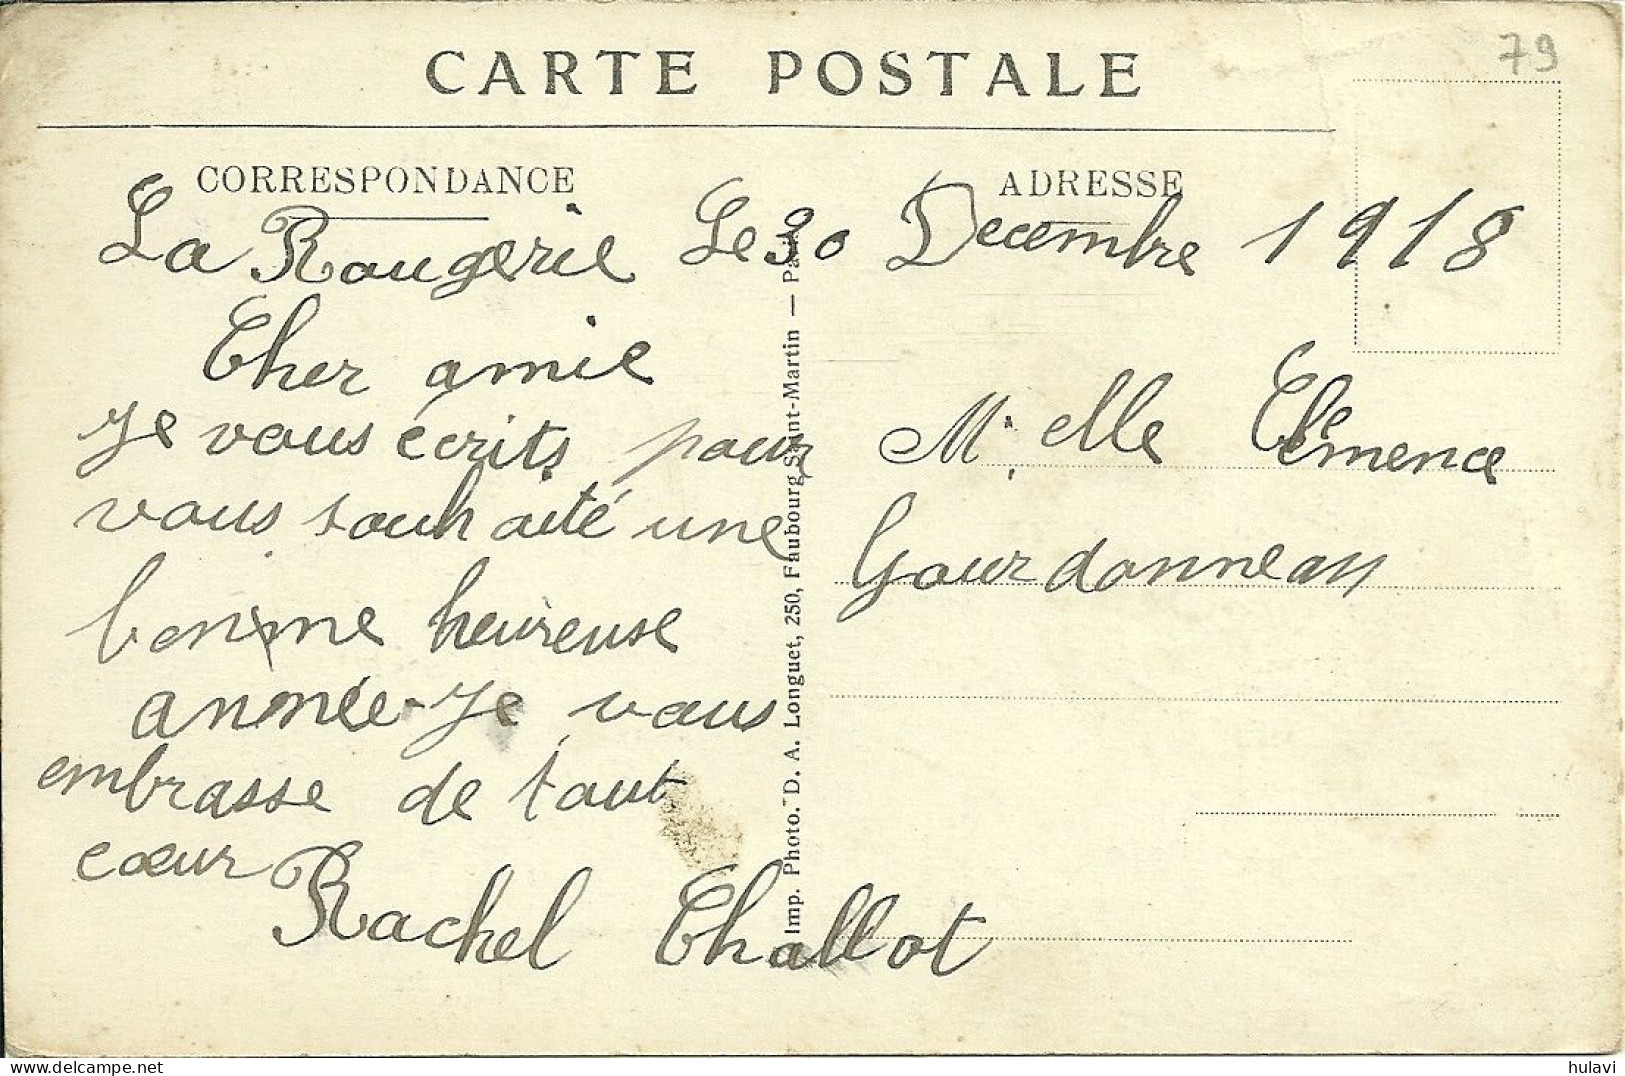 79
CARTE POSTALE
CORRESPONDANCE
ADRESSE
La Rougerie Le 30 Decembre 1918
Cher amie
Je vous écrits pour
vous souhaité une
bonne heureuse
année - Je vous
embrasse de tout
cœur
Rachel Challot
M.elle Clémence
Gourdonneau
Imp. Photo. D. A. Longuet, 250, Faubourg Saint-Martin — Paris
hulavi